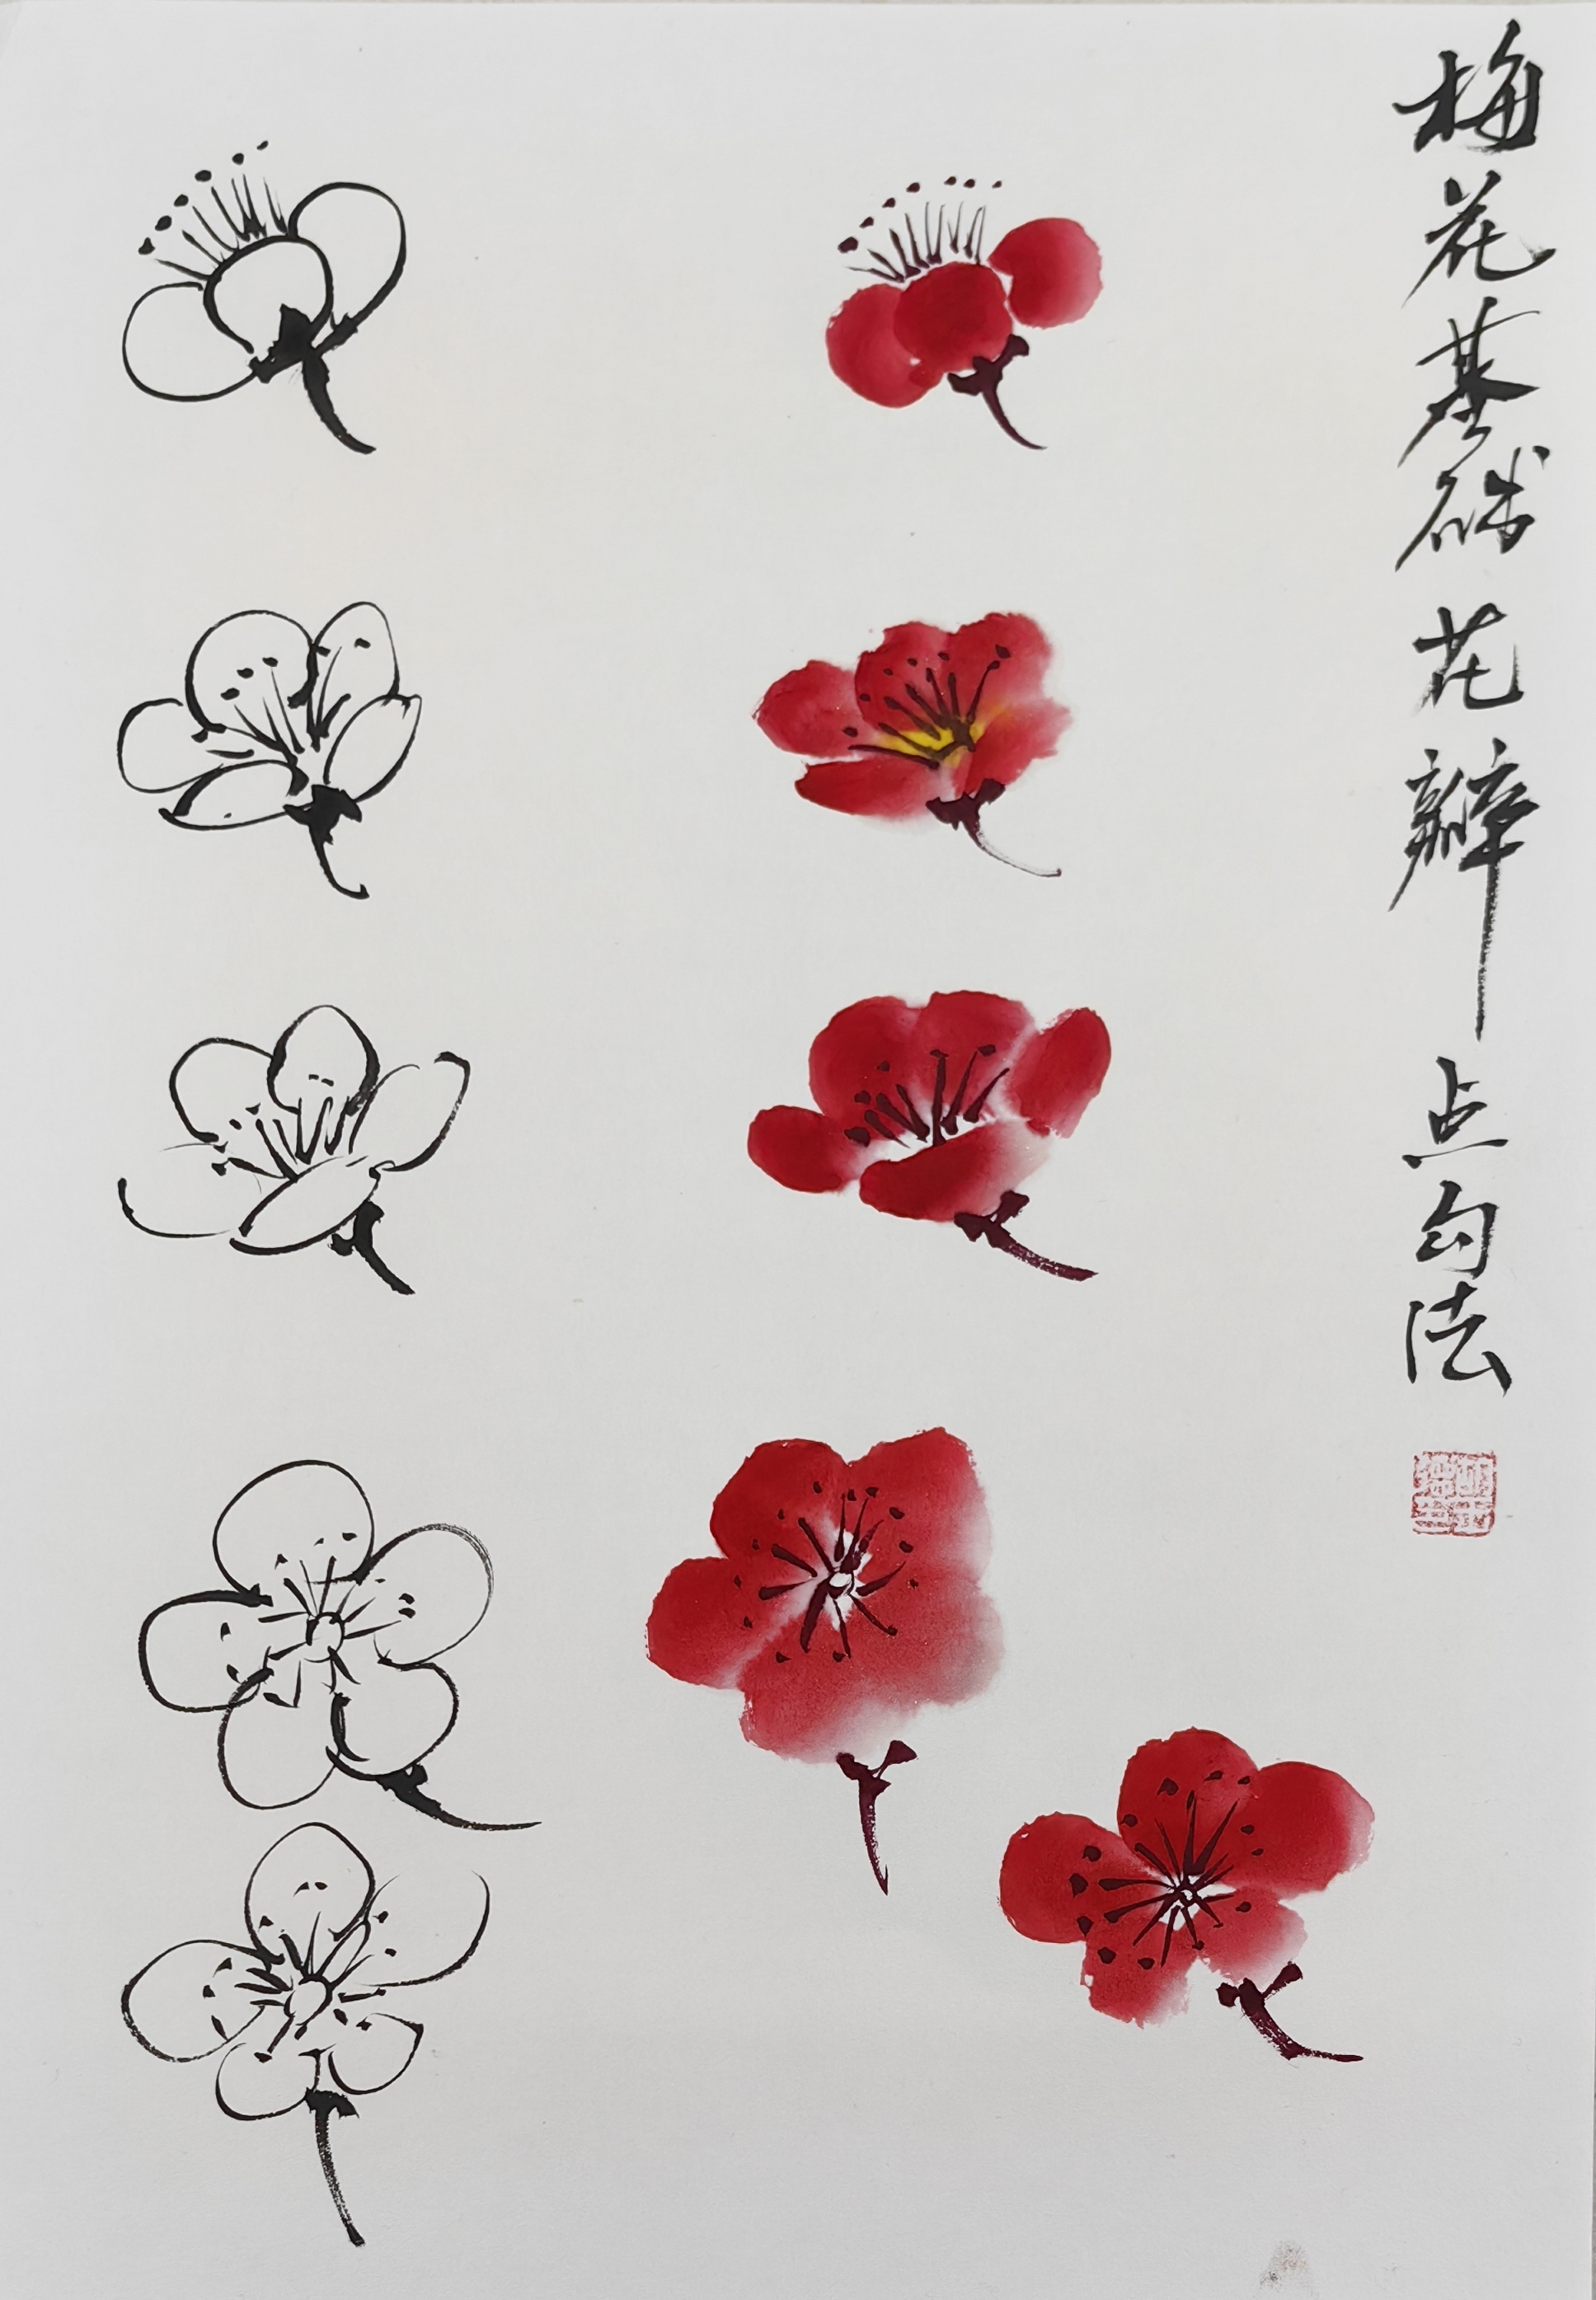 梅花基础花瓣点勾法